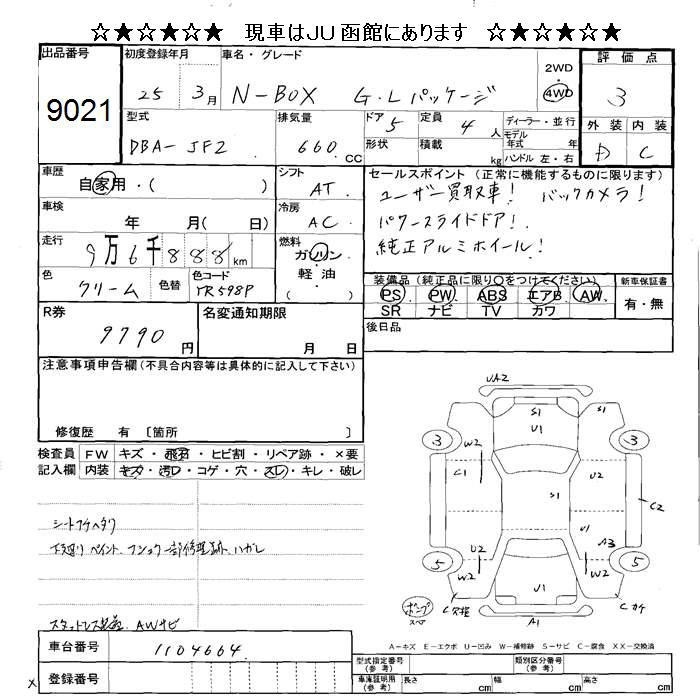 ☆★☆★☆★ 現車はJU函館にあります ☆★☆★☆★
出品番号 9021
初度登録年月 25 3月
車名・グレード N-BOX G・Lパッケージ
2WD
4WD
評価点 3
型式 DBA-JF2
排気量 660 CC
ドア 5
形状
定員 4 人
積載 kg
ディーラー・並行
モデル年式 年式
ハンドル 左・右
外装 内装
D C
車歴 自家用・( )
シフト AT
車検 年 月( 日)
冷房 AC
走行 9万6千888km
燃料 ガソリン
軽油
( )
色 クリーム
色替
色コード YR598P
セールスポイント (正常に機能するものに限ります)
ユーザー買取車! バックカメラ!
パワースライドドア!
純正アルミホイール!
装備品 (純正品に限り○をつけてください)
PS PW ABS エアB AW
SR ナビ TV カワ
新車保証書
有・無
R券 9790円
名変通知期限
月 日
後日品
注意事項申告欄 (不具合内容等は具体的に記入して下さい)
修復歴 有 〔箇所 〕
検査員記入欄
FW キズ・飛石・ヒビ割・リペア跡・×要
内装 キズ・汚レ・コゲ・穴・スレ・キレ・破レ
シートフケヘタリ
下廻りペイント
ハガレ
AWサビ
UA2
S1
U1
S1
3
W2
3
W2
C1
U2
S1
C2
U1
U2
A3
5
W2
5
W2
U1
A1
スペア
A-キズ E-エクボ U-凹み W-補修跡 S-サビ C-腐食 XX-交換済
車台番号 1104664
登録番号
×
型式指定番号 (参考)
類別区分番号 (参考)
車庫証明用 (参考) 長さ cm 幅 cm 高さ cm